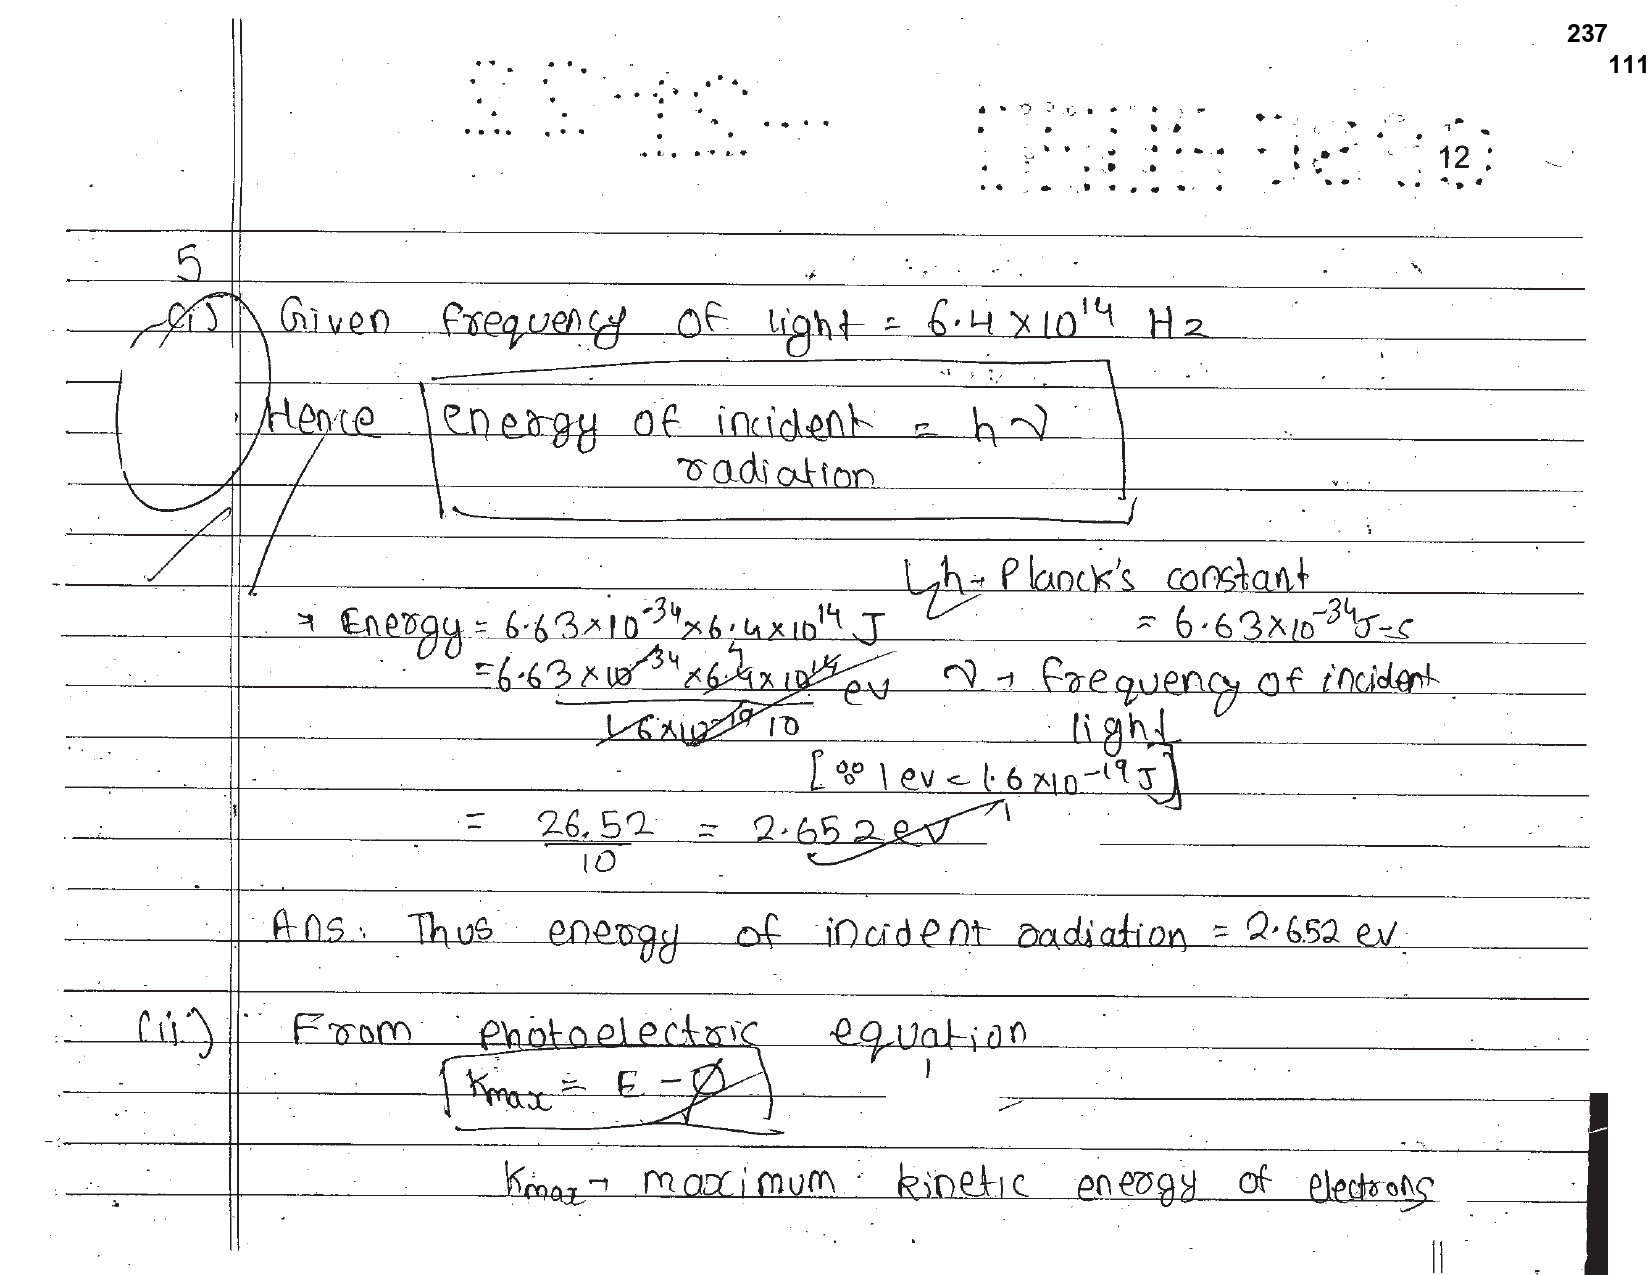 237
111
12
5
(i) Given frequency of light = 6.4 × 10¹⁴ Hz
Hence energy of incident = hν
radiation
↳ h → Planck's constant
⇒ Energy = 6.63 × 10⁻³⁴ × 6.4 × 10¹⁴ J
= 6.63 × 10⁻³⁴ J-s
= 6.63 × 10⁻³⁴ × 6.4 × 10¹⁴ ev
4
ν → frequency of incident
1.6 × 10⁻¹⁹ 10
light
[∵ 1 ev = 1.6 × 10⁻¹⁹ J]
= 26.52 = 2.652 ev
10
Ans. Thus energy of incident radiation = 2.652 ev
(ii) From photoelectric equation
Kmax = E - Ø
Kmax → maximum kinetic energy of electrons